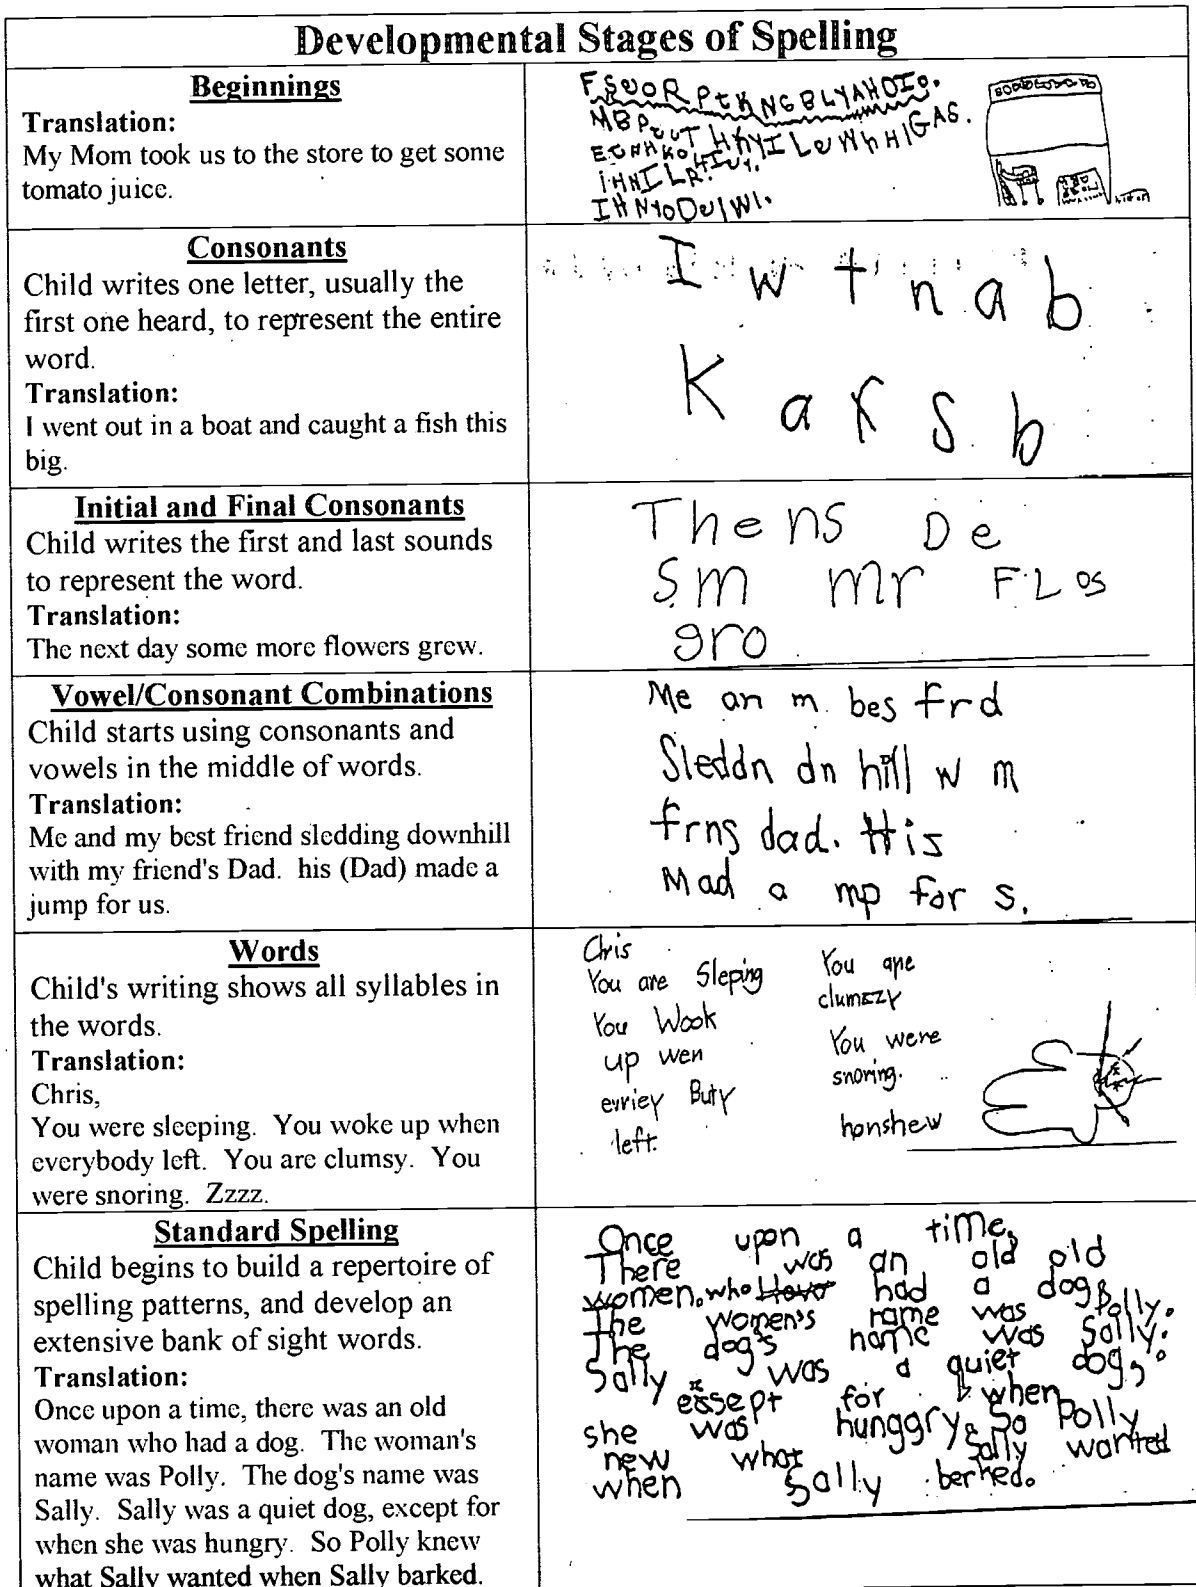 Developmental Stages of Spelling
Beginnings
Translation:
My Mom took us to the store to get some
tomato juice.
Consonants
Child writes one letter, usually the
first one heard, to represent the entire
word.
Translation:
I went out in a boat and caught a fish this
big.
I w t n a b
K a f s b
Initial and Final Consonants
Child writes the first and last sounds
to represent the word.
Translation:
The next day some more flowers grew.
The ns De
Sm mr FLos
gro
Vowel/Consonant Combinations
Child starts using consonants and
vowels in the middle of words.
Translation:
Me and my best friend sledding downhill
with my friend's Dad. his (Dad) made a
jump for us.
Me an m bes frd
Sleddn dn hill w m
frns dad. His
Mad a mp for s.
Words
Child's writing shows all syllables in
the words.
Translation:
Chris,
You were sleeping. You woke up when
everybody left. You are clumsy. You
were snoring. Zzzz.
Chris
You are Sleping
You Wook
up wen
evriey Buty
left.
You are
clumzzy
You were
snoring.
honshew
Standard Spelling
Child begins to build a repertoire of
spelling patterns, and develop an
extensive bank of sight words.
Translation:
Once upon a time, there was an old
woman who had a dog. The woman's
name was Polly. The dog's name was
Sally. Sally was a quiet dog, except for
when she was hungry. So Polly knew
what Sally wanted when Sally barked.
Once upon a time,
There was an old old
women. who had a dog.
The women's name was Polly.
The dog's name was Sally.
Sally was a quiet dog,
exsept for when
she was hunggry. So Polly
new what Sally wanted
when Sally berked.